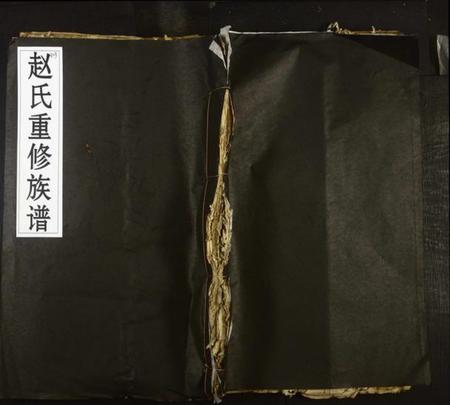 赵氏重修族谱